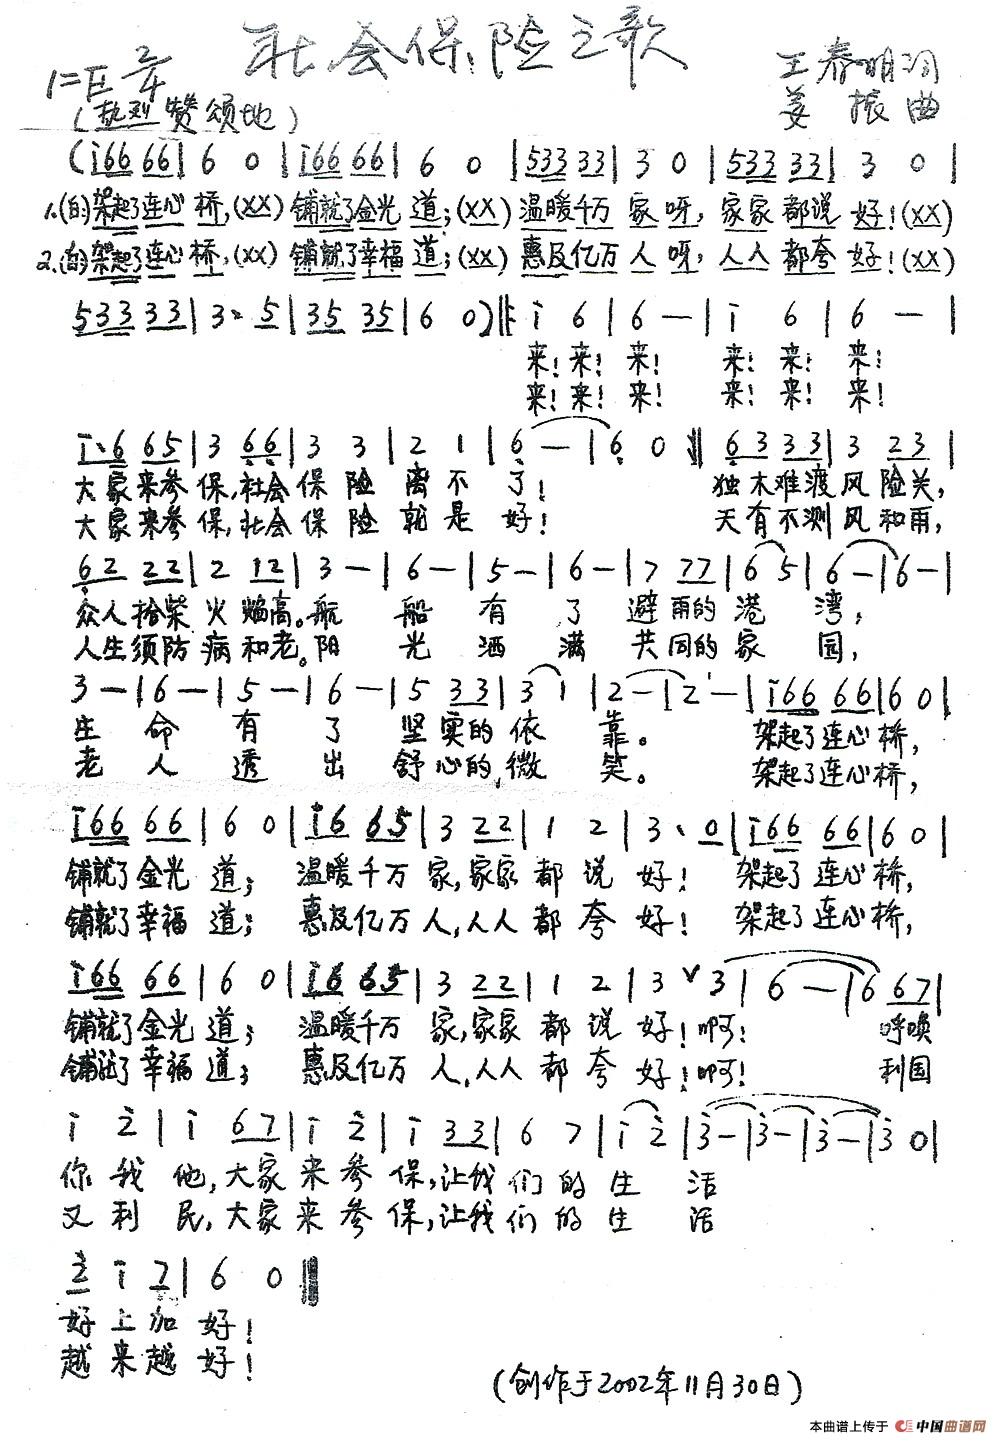 社会保险之歌
1=E 2/4
王春明 词
(热烈 赞颂地)
姜 振 曲
(i66 66 | 6 0 | i66 66 | 6 0 | 533 33 | 3 0 | 533 33 | 3 0 |
1.(的)架起了连心 桥,(XX) 铺就了金光 道;(XX) 温暖千万 家呀, 家家都说 好!(XX)
2.(的)架起了连心 桥,(XX) 铺就了幸福 道;(XX) 惠及亿万 人呀, 人人都夸 好!(XX)
533 33 | 3· 5 | 35 35 | 6 0) ‖: i 6 | 6 — | i 6 | 6 — |
来!来! 来! 来! 来! 来!
来!来! 来! 来! 来! 来!
i·6 65 | 3 66 | 3 3 | 2 1 | 6 — | 6 0 ‖ 6333 | 3 23 |
大家来参 保,社会 保 险 离 不 了! 独木难渡 风 险关,
大家来参 保,社会 保 险 就 是 好! 天有不测 风 和雨,
62 22 | 2 12 | 3 — | 6 — | 5 — | 6 — | 7 77 | 6 5 | 6 — | 6 — |
众人拾柴 火 焰高。航 船 有 了 避 雨的 港 湾,
人生须防 病 和老。阳 光 洒 满 共 同的 家 园,
3 — | 6 — | 5 — | 6 — | 5 33 | 3 1 | 2 — | 2 — | i66 66 | 6 0 |
生 命 有 了 坚 实的 依 靠。 架起了连心 桥,
老 人 透 出 舒 心的 微 笑。 架起了连心 桥,
i66 66 | 6 0 | i6 65 | 3 22 | 1 2 | 3· 0 | i66 66 | 6 0 |
铺就了金光 道; 温暖千万 家,家家 都 说 好! 架起了连心 桥,
铺就了幸福 道; 惠及亿万 人,人人 都 夸 好! 架起了连心 桥,
i66 66 | 6 0 | i6 65 | 3 22 | 1 2 | 3 ∨ 3 | 6 — | 6 67 |
铺就了金光 道; 温暖千万 家,家家 都 说 好!啊! 呼唤
铺就了幸福 道; 惠及亿万 人,人人 都 夸 好!啊! 利国
i 2 | i 67 | i 2 | i 33 | 6 7 | i 2 | 3 — | 3 — | 3 — | 3 0 |
你 我 他,大家 来 参 保,让我 们 的 生 活
又 利 民,大家 来 参 保,让我 们 的 生 活
2 i 7 | 6 0 ‖
好 上 加 好!
越 来 越 好!
(创作于2002年11月30日)
本曲谱上传于 中国曲谱网